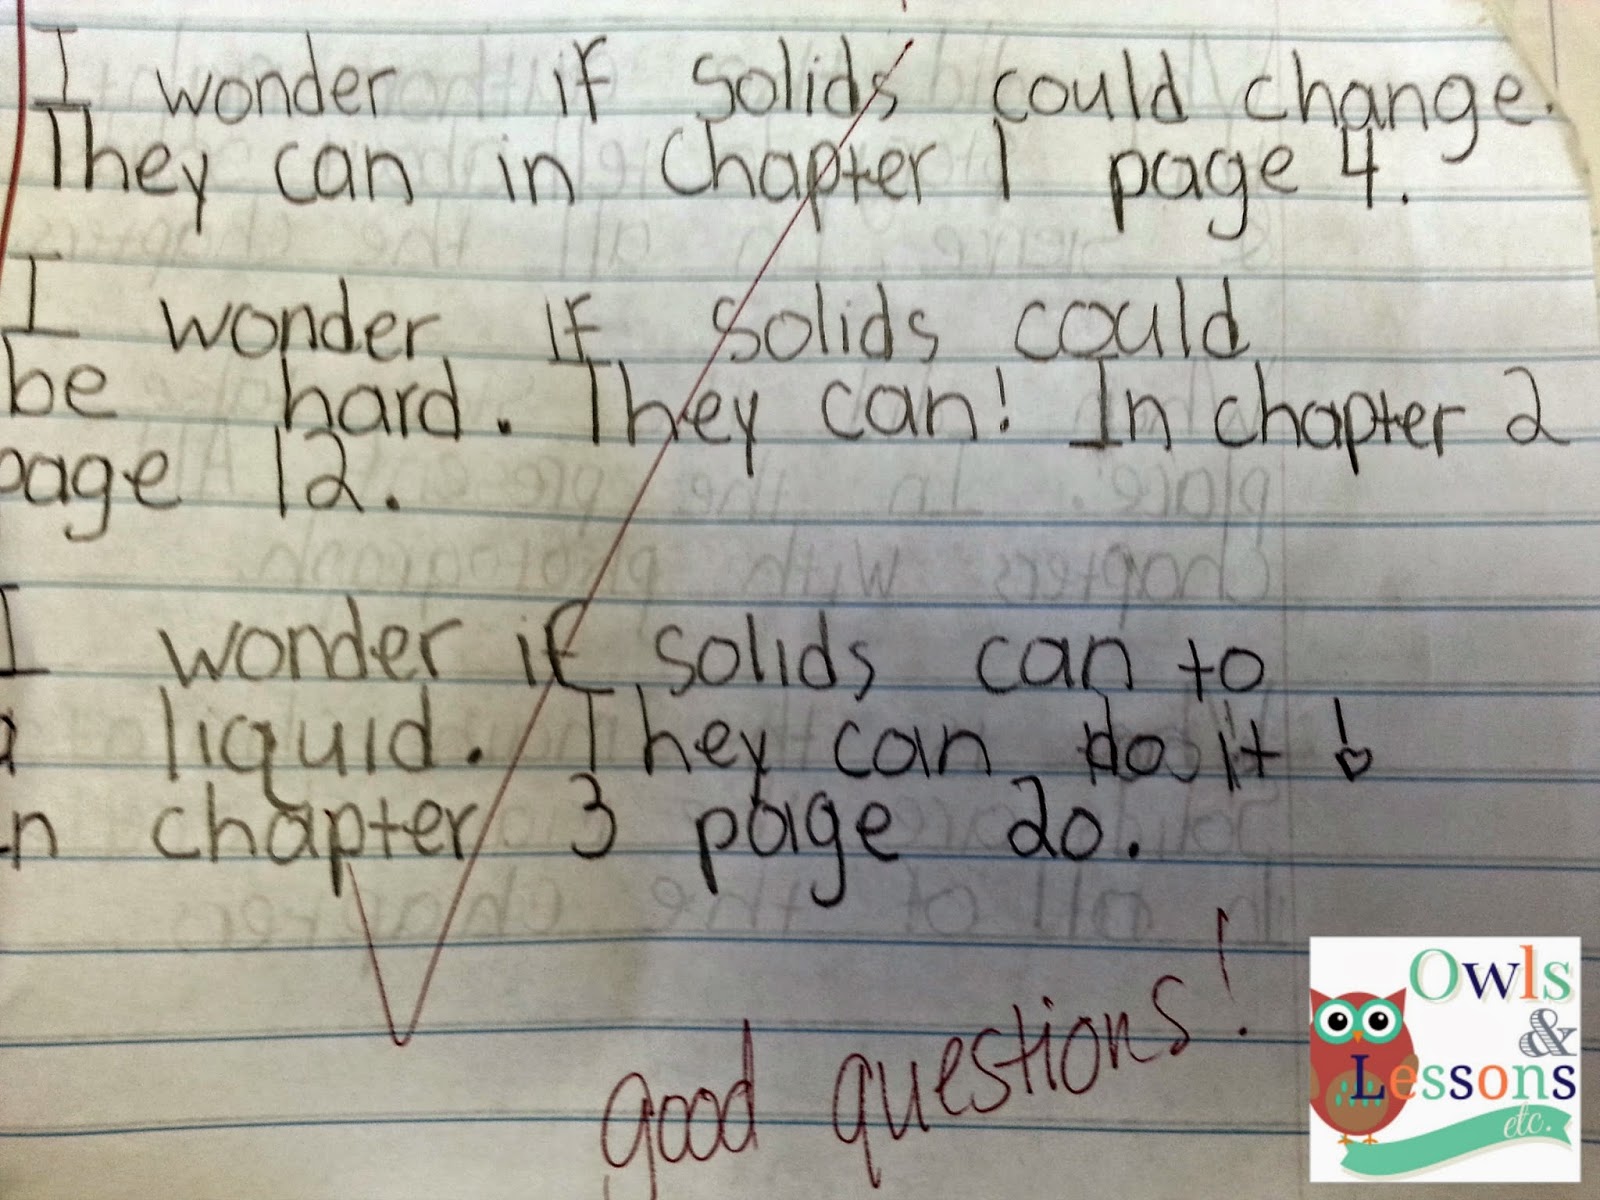 I wonder if solids could change.
They can in Chapter 1 page 4.
I wonder if solids could
be hard. They can! In chapter 2
page 12.
I wonder if solids can to
a liquid. They can do it!
In chapter 3 page 20.
good questions!
Owls
&
Lessons
etc.